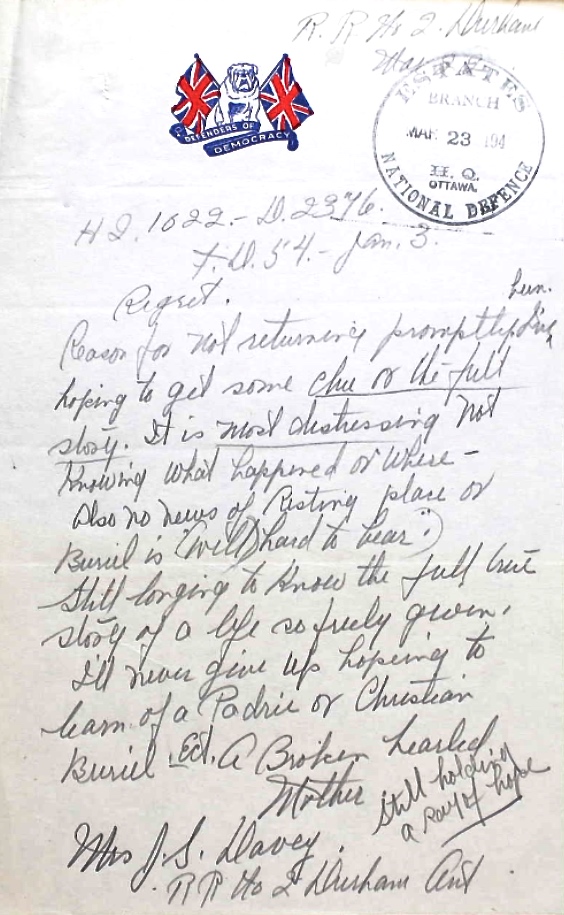 R. R No 2. Durham
Mar
ESTATES
BRANCH
MAR 23 194
H. Q.
OTTAWA.
NATIONAL DEFENCE
DEFENDERS OF
DEMOCRACY
HQ. 1022.- D. 2376.
F.D. 54.- Jan. 3.
Regret.
Reason for not returning promptly. I've been
hoping to get some clue or the full
story. It is most distressing not
knowing what happened or where -
Also no news of Resting place or
Buriel is (well) hard to bear.
Still longing to know the full true
story of a life so freely given.
I'll never give up hoping to
learn of a Padrie or Christian
Buriel. A Broken hearted
Mother
Still holding
a ray of hope
Mrs J. S. Davey.
RR No 2 Durham Ont.